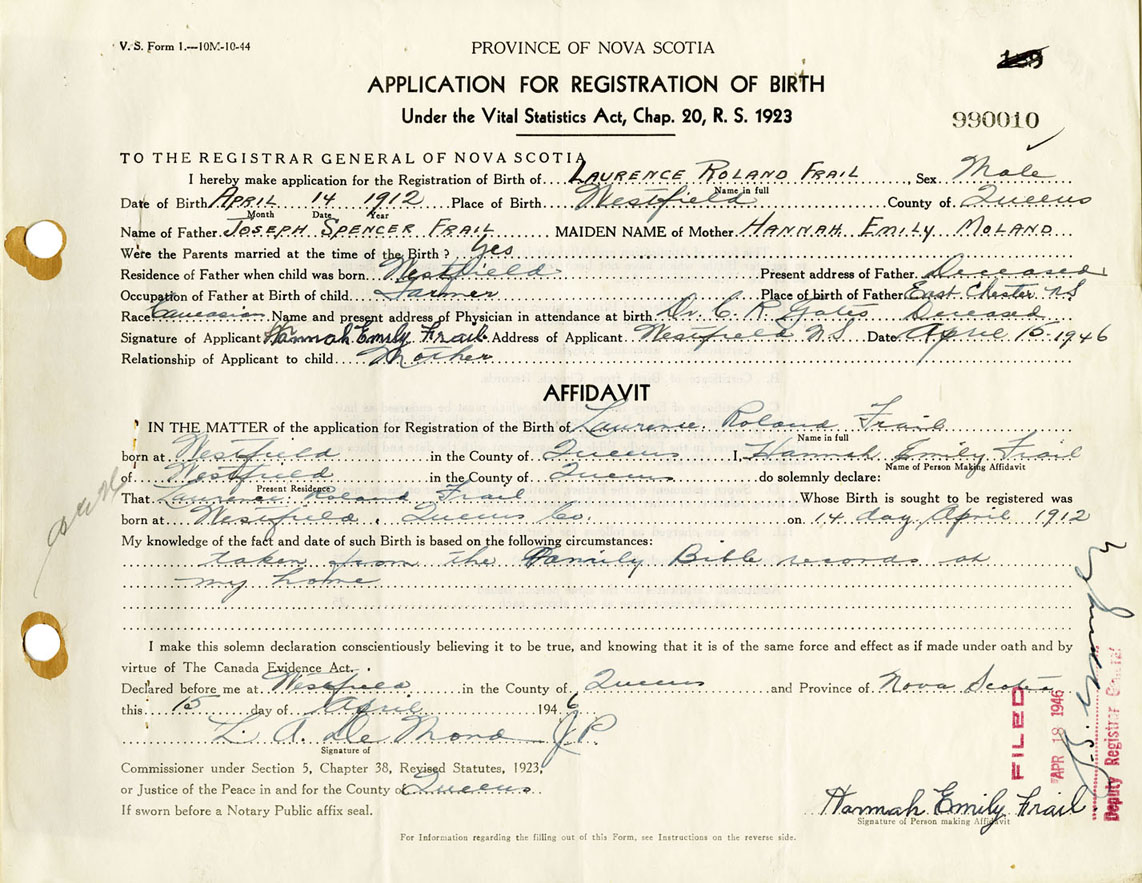 V. S. Form 1.—10M-10-44
PROVINCE OF NOVA SCOTIA
APPLICATION FOR REGISTRATION OF BIRTH
Under the Vital Statistics Act, Chap. 20, R. S. 1923
990010
TO THE REGISTRAR GENERAL OF NOVA SCOTIA
I hereby make application for the Registration of Birth of LAURENCE ROLAND FRAIL, Sex Male
Name in full
Date of Birth APRIL 14 1912 Place of Birth Westfield County of Queens
Month Date Year
Name of Father JOSEPH SPENCER FRAIL MAIDEN NAME of Mother HANNAH EMILY MOLAND
Were the Parents married at the time of the Birth? Yes
Residence of Father when child was born Westfield Present address of Father Deceased
Occupation of Father at Birth of child Farmer Place of birth of Father East Chester N.S
Race Caucasian Name and present address of Physician in attendance at birth Dr. C. R. Gates Deceased
Signature of Applicant Hannah Emily Frail Address of Applicant Westfield N.S. Date April 15 1946
Relationship of Applicant to child Mother
AFFIDAVIT
IN THE MATTER of the application for Registration of the Birth of Laurence Roland Frail
Name in full
born at Westfield in the County of Queens I, Hannah Emily Frail
Name of Person Making Affidavit
of Westfield in the County of Queens do solemnly declare:
Present Residence
That Laurence Roland Frail Whose Birth is sought to be registered was
born at Westfield, Queens Co. on 14 day April 1912
My knowledge of the fact and date of such Birth is based on the following circumstances:
taken from the Family Bible records at
my home
I make this solemn declaration conscientiously believing it to be true, and knowing that it is of the same force and effect as if made under oath and by
virtue of The Canada Evidence Act.
Declared before me at Westfield in the County of Queens and Province of Nova Scotia
this 15 day of April 1946
L. A. De Mond J.P.
Signature of
Commissioner under Section 5, Chapter 38, Revised Statutes, 1923,
or Justice of the Peace in and for the County of Queens
If sworn before a Notary Public affix seal.
Hannah Emily Frail
Signature of Person making Affidavit
For Information regarding the filling out of this Form, see Instructions on the reverse side.
FILED
APR 18 1946
Deputy Registrar General